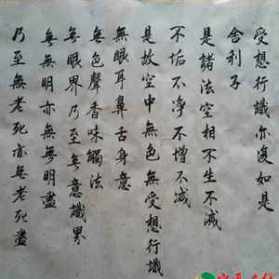 受想行識亦復如是
舍利子
是諸法空相不生不滅
不垢不净不增不減
是故空中無色無受想行識
無眼耳鼻舌身意
無色聲香味觸法
無眼界乃至無意識界
無無明亦無無明盡
乃至無老死亦無老死盡